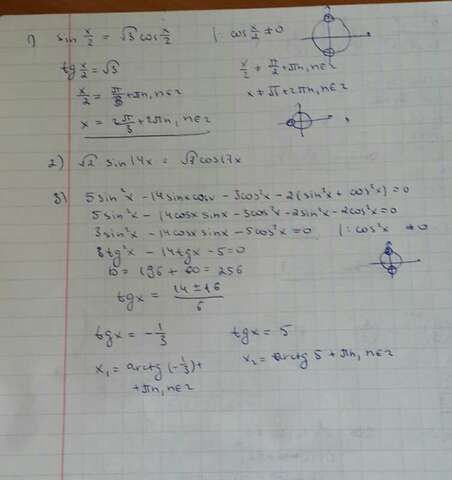 1) sin x/2 = √3 cos x/2 |: cos x/2 ≠ 0
tg x/2 = √3 x/2 ≠ π/2 + πn, n∈z
x/2 = π/3 + πn, n∈z x ≠ π + 2πn, n∈z
x = 2π/3 + 2πn, n∈z
2) √2 sin 14x = √3 cos 17x
3) 5sin²x - 14sinxcosx - 3cos²x - 2(sin²x + cos²x) = 0
5sin²x - 14cosx sinx - 3cos²x - 2sin²x - 2cos²x = 0
3sin²x - 14cosx sinx - 5cos²x = 0 |: cos²x ≠ 0
3tg²x - 14tgx - 5 = 0
D = 196 + 60 = 256
tgx = (14 ± 16)/6
tgx = -1/3 tgx = 5
x₁ = arctg(-1/3) + x₂ = arctg 5 + πn, n∈z
+πn, n∈z